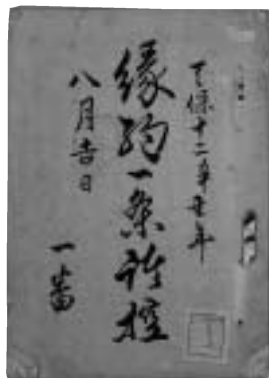 天保十二辛丑年
縁約一条諸控
八月吉日
一番